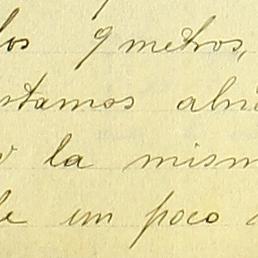 los 9 metros,
stamos
la mism
le un poco